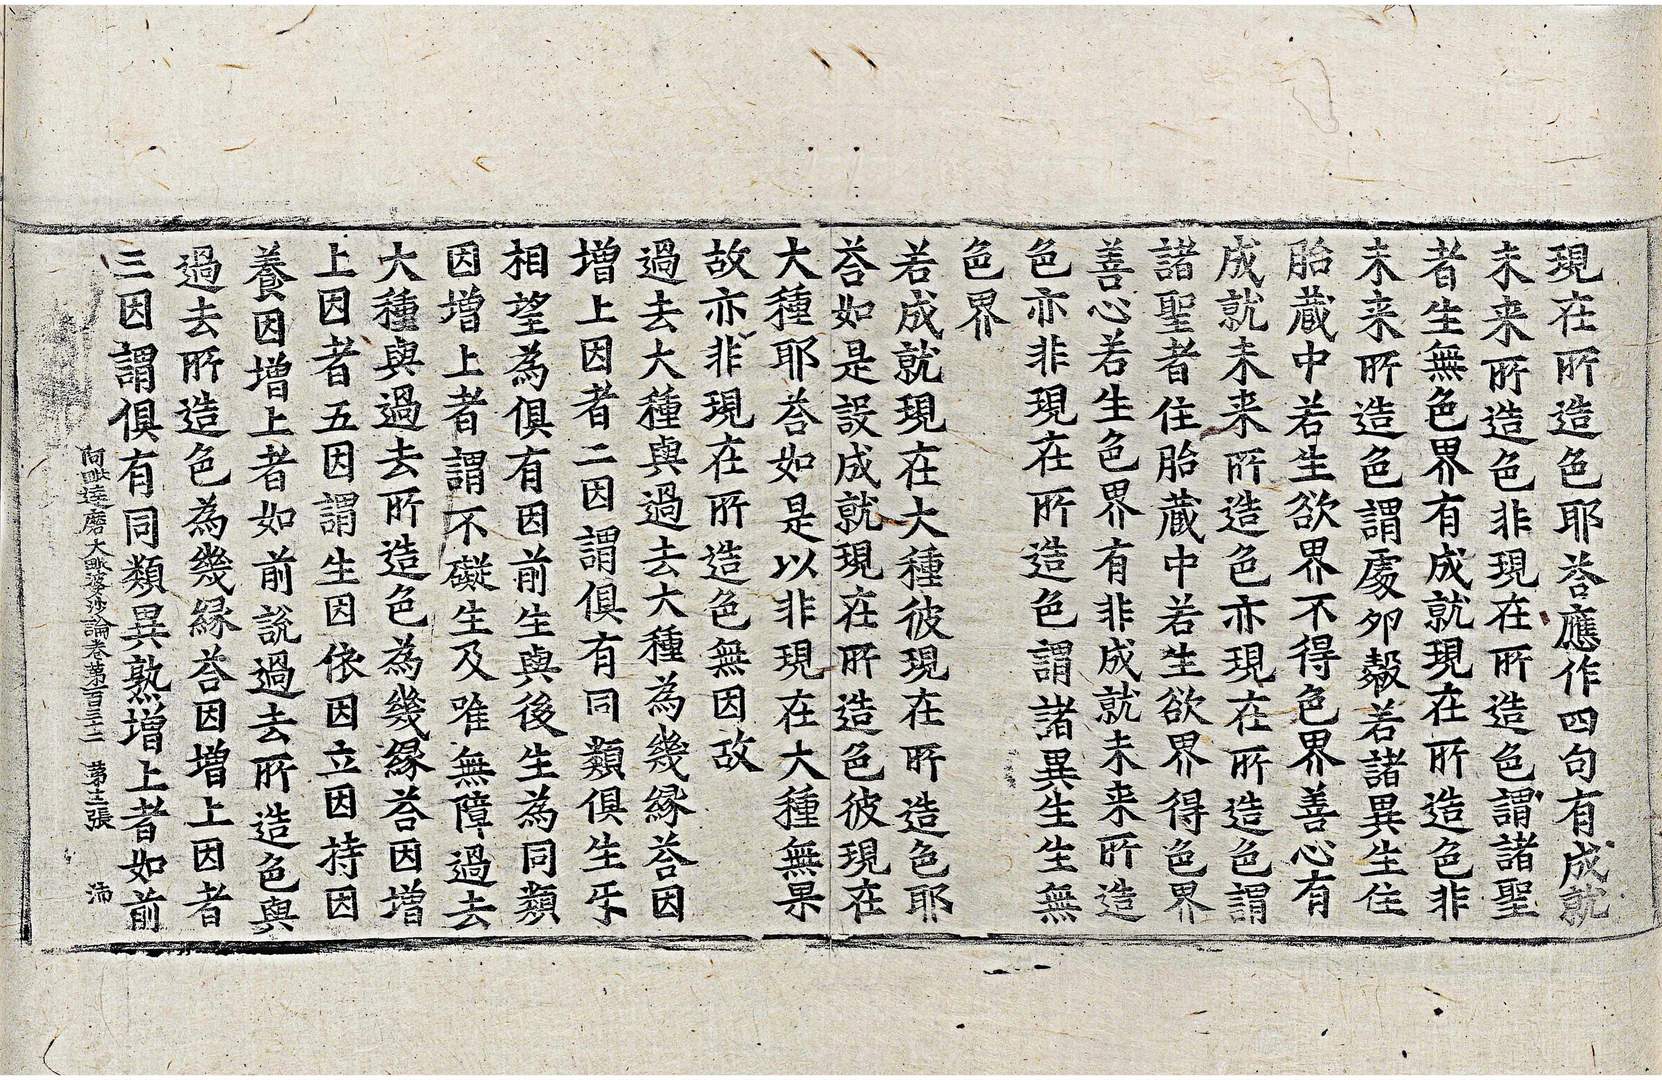 現在所造色耶荅應作四句有成就
未来所造色非現在所造色謂諸聖
者生無色界有成就現在所造色非
未来所造色謂處夘㲉若諸異生住
胎蔵中若生欲界不得色界善心有
成就未来所造色亦現在所造色謂
諸聖者住胎蔵中若生欲界得色界
善心若生色界有非成就未来所造
色亦非現在所造色謂諸異生生無
色界
若成就現在大種彼現在所造色耶
荅如是設成就現在所造色彼現在
大種耶荅如是以非現在大種無果
故亦非現在所造色無因故
過去大種與過去大種為幾縁荅因
増上因者二因謂俱有同類俱生㸦
相望為俱有因前生與後生為同類
因増上者謂不礙生及唯無障過去
大種與過去所造色為幾縁荅因増
上因者五因謂生因依因立因持因
養因増上者如前說過去所造色與
過去所造色為幾縁荅因増上因者
三因謂俱有同類異熟増上者如前
阿毗達磨大毗婆沙論卷第百三十二 第十二張 沛